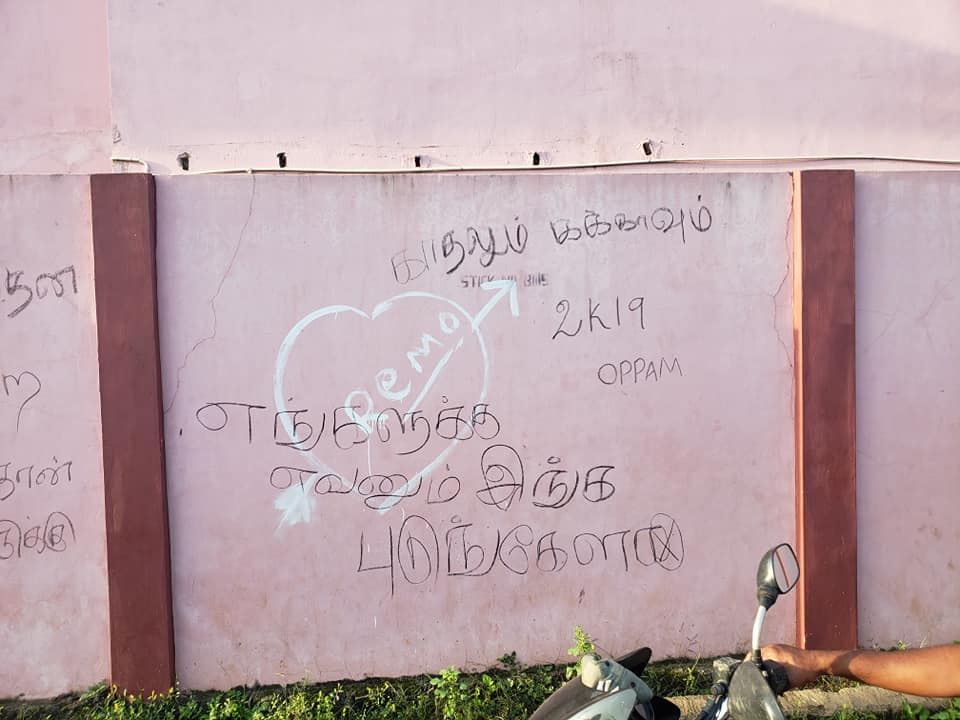 காதலும் கக்காவும்
STICK NO BIllS
2K19
Remo
OPPAM
எங்களுக்க
எவனும் இங்க
புடுங்கேளா
தன
தான்